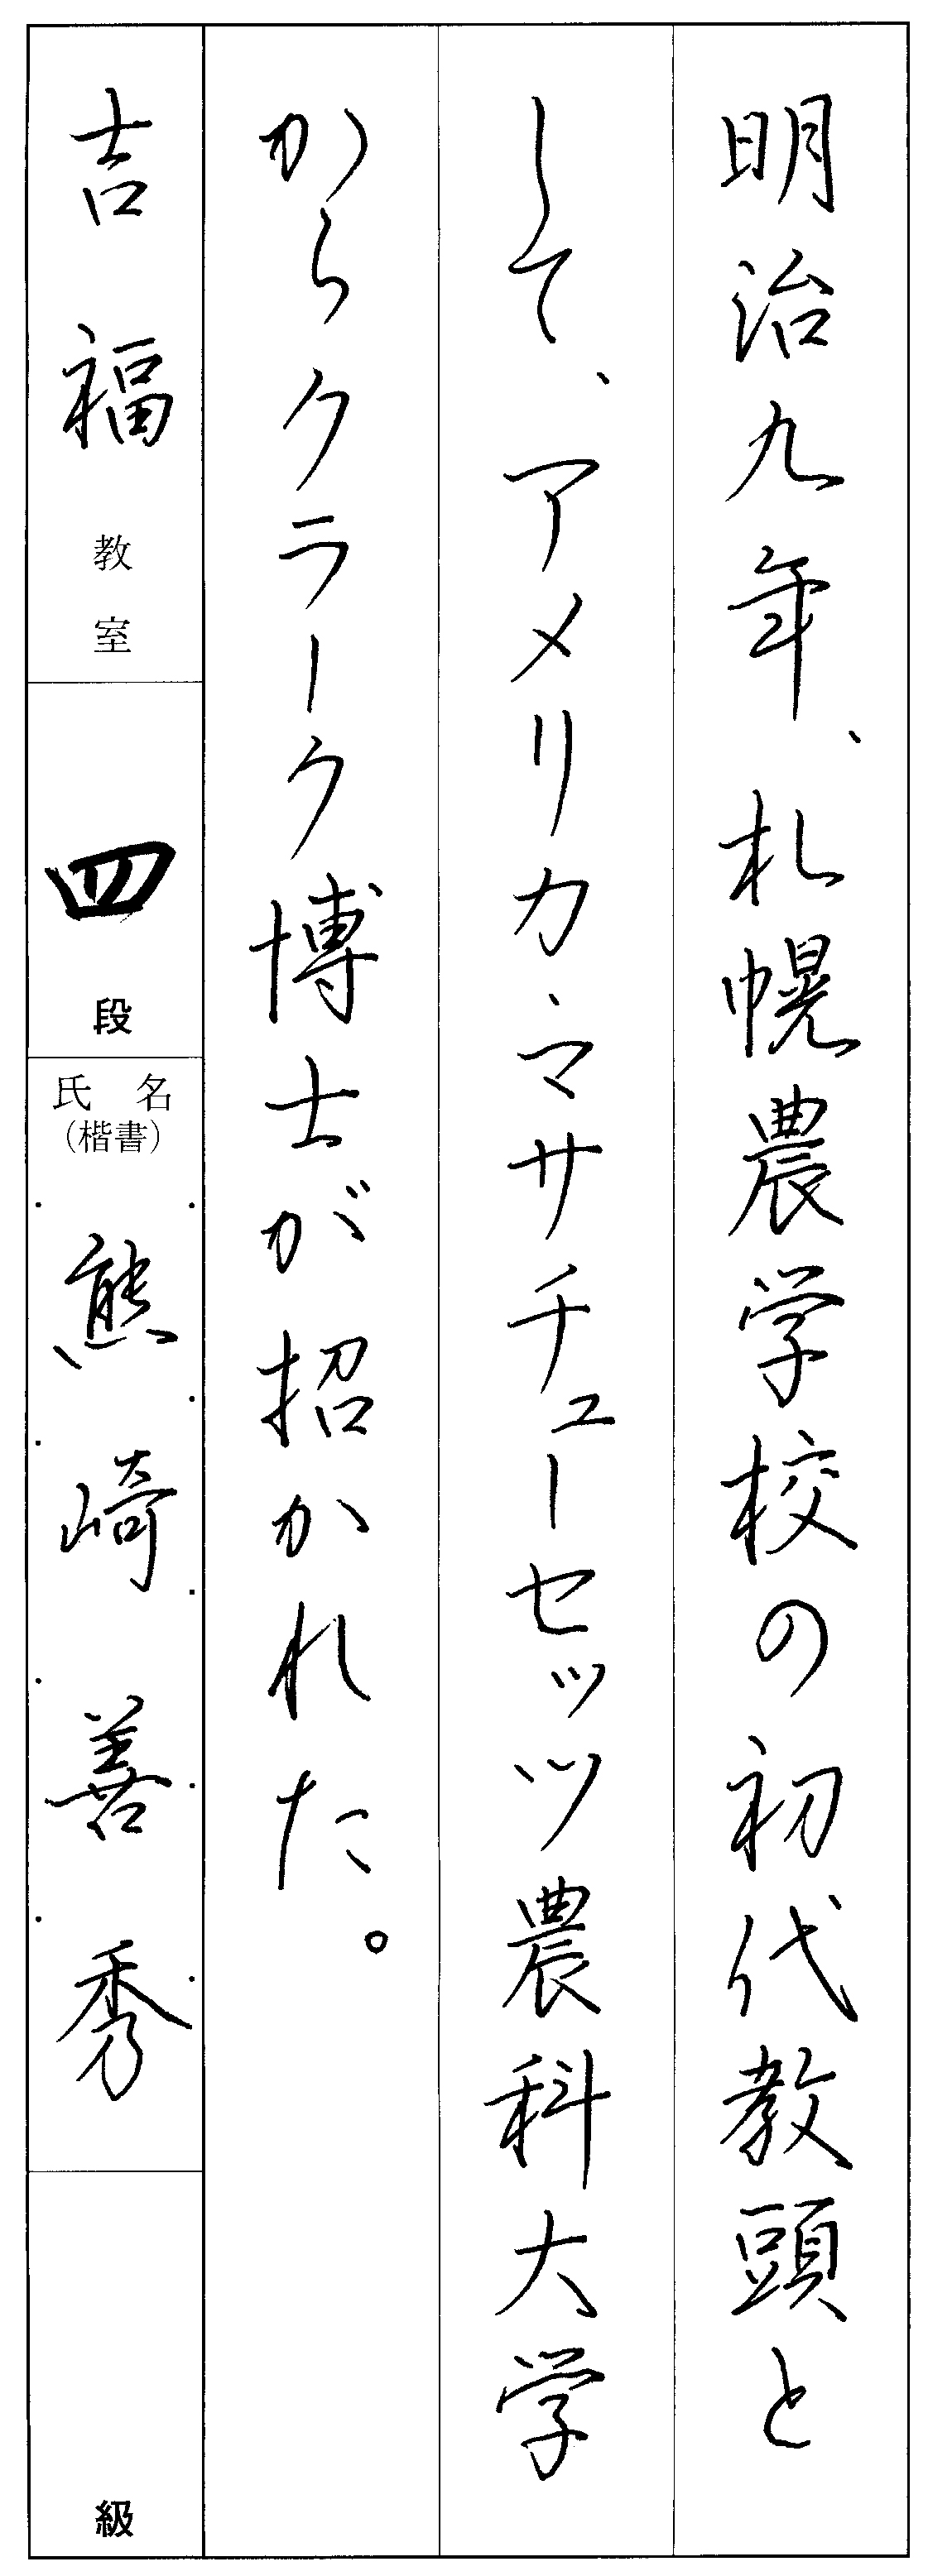 明治九年、札幌農学校の初代教頭と
して、アメリカ、マサチューセッツ農科大学
からクラーク博士が招かれた。
吉福教室
四段
氏名
(楷書)
熊崎善秀
級